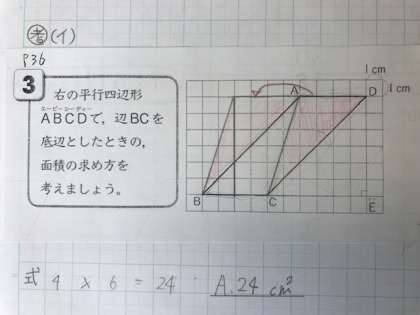 考(イ)
P36
3
右の平行四辺形
エービーシーディー
ABCDで、辺BCを
底辺としたときの、
面積の求め方を
考えましょう。
1cm
A
D
1cm
B
C
E
式 4 × 6 = 24 A.24 cm²